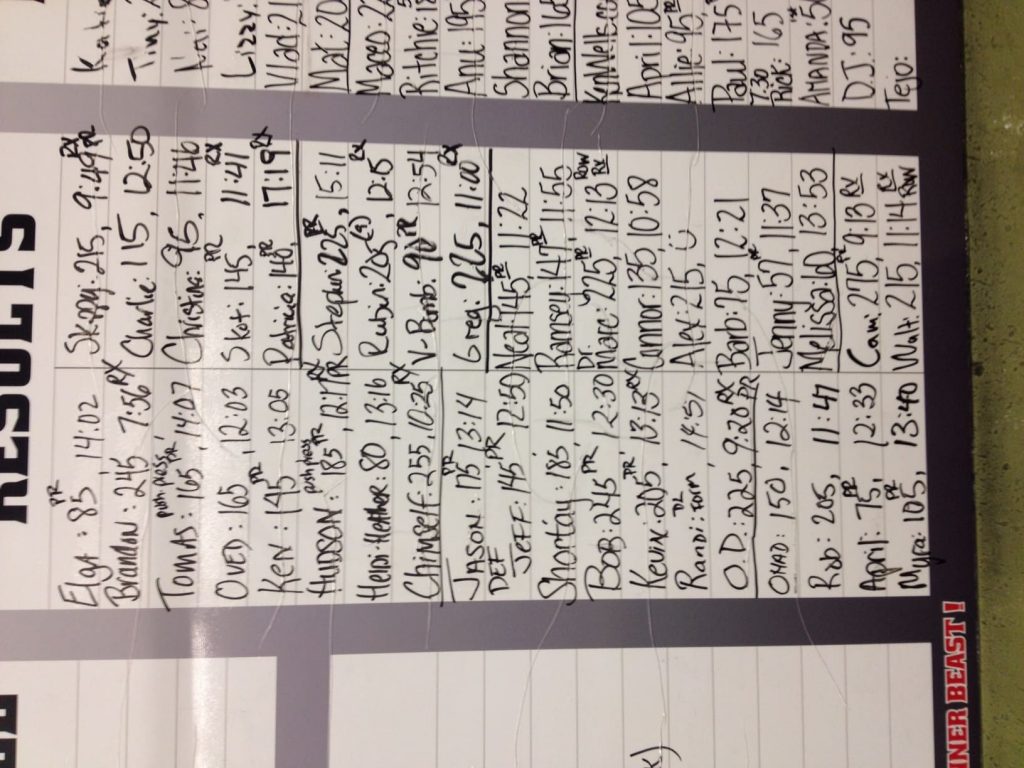 RESULTS
Elga: 85 PR 14:02
Brendan: 245 7:56 RX
TOMAS: 165 push press PR 14:07
OVED: 165, 12:03
KEN: 145 PR, 13:05
HUDSON: push press 185 PR, 12:17 RX PR
Heidi: Heather: 80, 13:16
Chimself: 255, 10:25 RX
JASON: 175, 13:14
DEF JEFF: 145 PR 12:50
Shortay 185, 11:50
BOB: 245 PR 12:30
Kevin: 205 PR, 13:13 RX
Randi: Form, 14:51
O.D.: 225, 9:20 RX PR
OHAD: 150, 12:14
Rob: 205, 11:47
April: 75 PR, 12:33
Myra: 105 PR, 13:40
Skippy: 215, 9:49 RX PR
Charlie: 115, 12:50
Christina: 95, 11:46
Skot: 145 PR, 11:41 RX
Patricia: 140 PR, 17:19 RX
Stequin: 225 PR, 15:11
Ruben: 205 (9), 12:15 RX
V-Bomb: 90 PR 12:54
Greg: 225, 11:00 RX
Neal: 145 PR 11:22
Ramsey: 147 PR, 11:55
Dr. Marc: 225 PR, 12:13 Row RX
Connor: 135 10:58
Alex: 215, :)
Barb: 75, 12:21
Jenny: 57 PR, 11:37
Melissa: 110, 13:53
Cami: 275, 9:13 RX
Walt: 215, 11:14 RX Row
Vlad: 21
Mat: 20
Maceo: 22
Ritchie:
Anu: 195
Shannon
Brian: 16
April: 105
Allie: 95 PR
Paul: 175
7:30 Rick: 165
AMANDA: 5
DJ: 95
Tejo:
INER BEAST!